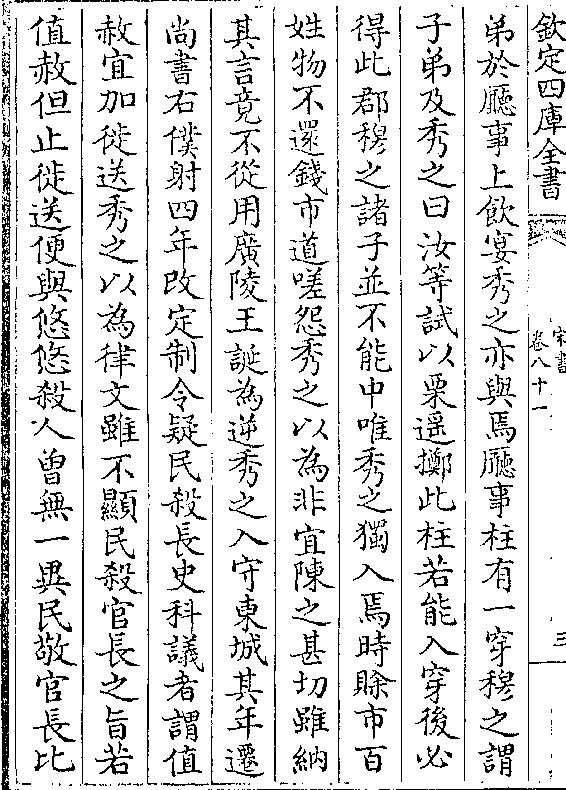 欽定四庫全書
宋書
卷八十一
三
弟於廳事上飲宴秀之亦與焉廳事柱有一穿穆之謂
子弟及秀之曰汝等試以栗遥擲此柱若能入穿後必
得此郡穆之諸子並不能中唯秀之獨入焉時賖市百
姓物不還錢市道嗟怨秀之以為非宜陳之甚切雖納
其言竟不從用廣陵王誕為逆秀之入守東城其年遷
尚書右僕射四年改定制令疑民殺長史科議者謂值
赦宜加徙送秀之以為律文雖不顯民殺官長之旨若
值赦但止徙送便與悠悠殺人曾無一異民敬官長比